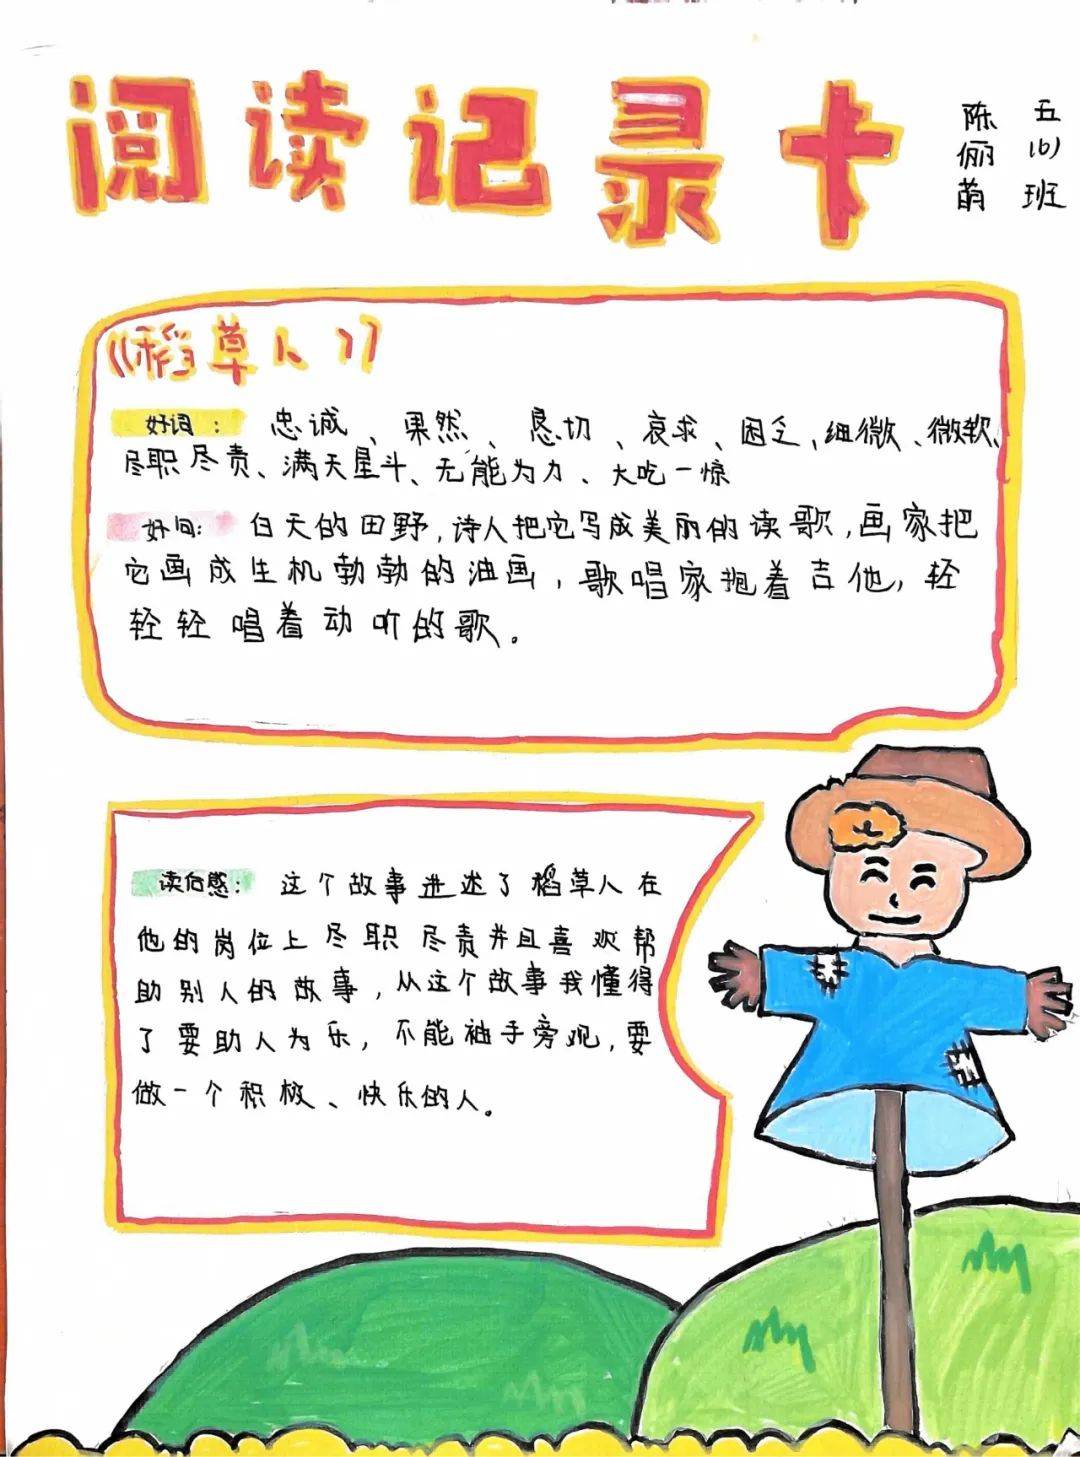 阅读记录卡
五(6)班
陈俪萌
《稻草人》
好词： 忠诚、果然、恳切、哀求、困乏、细微、微软、
尽职尽责、满天星斗、无能为力、大吃一惊
好句： 白天的田野，诗人把它写成美丽的读歌，画家把
它画成生机勃勃的油画，歌唱家抱着吉他，轻
轻轻唱着动听的歌。
读后感： 这个故事进述了稻草人在
他的岗位上尽职尽责并且喜欢帮
助别人的故事，从这个故事我懂得
了要助人为乐，不能袖手旁观，要
做一个积极、快乐的人。